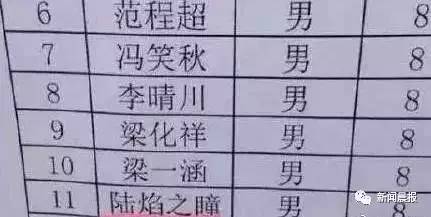 6 范程超 男 8
7 冯笑秋 男 8
8 李晴川 男 8
9 梁化祥 男 8
10 梁一涵 男 8
11 陆焰之瞳 男 8
新闻晨报